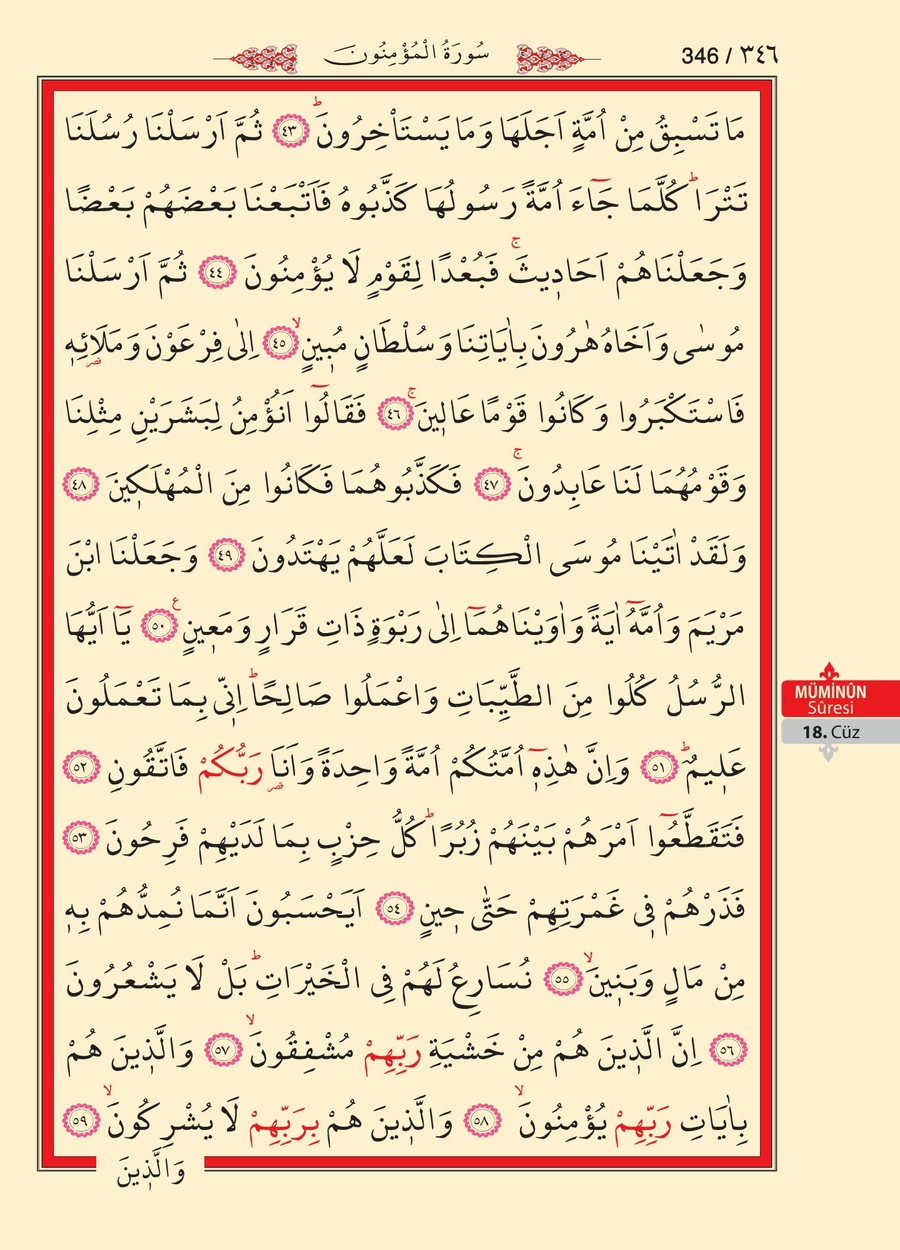 سُورَةُ الْمُؤْمِنُونَ
346 / ٣٤٦
مَا تَسْبِقُ مِنْ اُمَّةٍ اَجَلَهَا وَمَا يَسْتَأْخِرُونَۜ ﴿٤٣﴾ ثُمَّ اَرْسَلْنَا رُسُلَنَا
تَتْرَاۜ كُلَّمَا جَٓاءَ اُمَّةً رَسُولُهَا كَذَّبُوهُ فَاَتْبَعْنَا بَعْضَهُمْ بَعْضًا
وَجَعَلْنَاهُمْ اَحَاد۪يثَۚ فَبُعْدًا لِقَوْمٍ لَا يُؤْمِنُونَ ﴿٤٤﴾ ثُمَّ اَرْسَلْنَا
مُوسٰى وَاَخَاهُ هٰرُونَ بِاٰيَاتِنَا وَسُلْطَانٍ مُب۪ينٍۙ ﴿٤٥﴾ اِلٰى فِرْعَوْنَ وَمَلَائِه۪
فَاسْتَكْبَرُوا وَكَانُوا قَوْمًا عَال۪ينَۚ ﴿٤٦﴾ فَقَالُٓوا اَنُؤْمِنُ لِبَشَرَيْنِ مِثْلِنَا
وَقَوْمُهُمَا لَنَا عَابِدُونَۚ ﴿٤٧﴾ فَكَذَّبُوهُمَا فَكَانُوا مِنَ الْمُهْلَك۪ينَ ﴿٤٨﴾
وَلَقَدْ اٰتَيْنَا مُوسَى الْكِتَابَ لَعَلَّهُمْ يَهْتَدُونَ ﴿٤٩﴾ وَجَعَلْنَا ابْنَ
مَرْيَمَ وَاُمَّهُٓ اٰيَةً وَاٰوَيْنَاهُمَٓا اِلٰى رَبْوَةٍ ذَاتِ قَرَارٍ وَمَع۪ينٍ ﴿٥٠﴾ يَٓا اَيُّهَا
الرُّسُلُ كُلُوا مِنَ الطَّيِّبَاتِ وَاعْمَلُوا صَالِحًاۜ اِنّ۪ي بِمَا تَعْمَلُونَ
عَل۪يمٌۜ ﴿٥١﴾ وَاِنَّ هٰذِه۪ٓ اُمَّتُكُمْ اُمَّةً وَاحِدَةً وَاَنَا۬ رَبُّكُمْ فَاتَّقُونِ ﴿٥٢﴾
فَتَقَطَّعُٓوا اَمْرَهُمْ بَيْنَهُمْ زُبُرًاۜ كُلُّ حِزْبٍ بِمَا لَدَيْهِمْ فَرِحُونَ ﴿٥٣﴾
فَذَرْهُمْ ف۪ي غَمْرَتِهِمْ حَتّٰى ح۪ينٍ ﴿٥٤﴾ اَيَحْسَبُونَ اَنَّمَا نُمِدُّهُمْ بِه۪
مِنْ مَالٍ وَبَن۪ينَۙ ﴿٥٥﴾ نُسَارِعُ لَهُمْ فِي الْخَيْرَاتِۜ بَلْ لَا يَشْعُرُونَ
﴿٥٦﴾ اِنَّ الَّذ۪ينَ هُمْ مِنْ خَشْيَةِ رَبِّهِمْ مُشْفِقُونَۙ ﴿٥٧﴾ وَالَّذ۪ينَ هُمْ
بِاٰيَاتِ رَبِّهِمْ يُؤْمِنُونَۙ ﴿٥٨﴾ وَالَّذ۪ينَ هُمْ بِرَبِّهِمْ لَا يُشْرِكُونَۙ ﴿٥٩﴾
وَالَّذ۪ينَ
MÜMİNÛN
Sûresi
18. Cüz